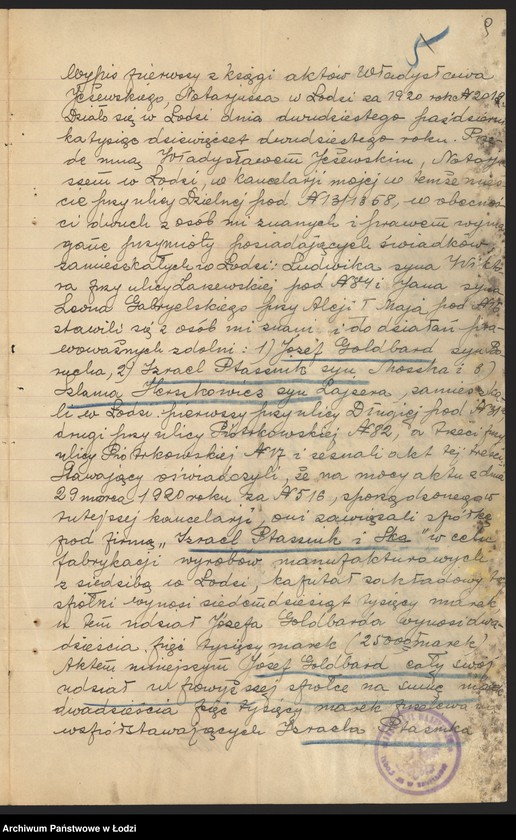 5
9
Wypis pierwszy z księgi aktów Władysława
Jeżewskiego, Notarjusza w Łodzi za 1920 rok N 2012
Działo się w Łodzi dnia dwudziestego październi
ka tysiąc dziewięćset dwudziestego roku. Prze
de mną Władysławem Jeżewskim, Notarju
szem w Łodzi, w kancelarji mojej w temże mieś
cie przy ulicy Dzielnej pod N 13/1368, w obecnoś
ci dwuch z osób mi znanych i prawem wyma
gane przymioty posiadających świadków
zamieszkałych w Łodzi: Ludwika syna Wikto
ra przy ulicy pod N 84 i Jana syna
Leona Gabryelskiego przy Aleji 1 Maja pod N
stawili się z osób mi znani i do działań pra
wowaźnych zdolni: 1) Josef Goldbard syn Bo
rucha, 2) Izrael Ptasznik syn Moszka i 3)
Szlama Herszkowicz syn Lajzera, zamieszka
li w Łodzi: pierwszy przy ulicy Długiej pod N
drugi przy ulicy Piotrkowskiej N 82, a trzeci przy
ulicy Piotrkowskiej N 17 i zeznali akt tej treści:
Stawający oświadczyli, że na mocy aktu z dnia
29 marca 1920 roku za N 516, sporządzonego w
tutejszej kancelarji, oni zawiązali spółkę
pod firmą „Izrael Ptasznik i Ska" w celu
fabrykacji wyrobów manufakturowych
z siedzibą w Łodzi, kapitał zakładowy tej
spółki wynosi siedemdziesiąt tysięcy marek
w tem udział Josefa Goldbarda wynosi dwa
dzieścia pięć tysięcy marek (25000 marek)
Aktem niniejszym Josef Goldbard cały swój
udział w powyższej spółce na sumę marek
dwadzieścia pięć tysięcy marek przelewa na
współstawających Izraela Ptasznika
Archiwum Państwowe w Łodzi